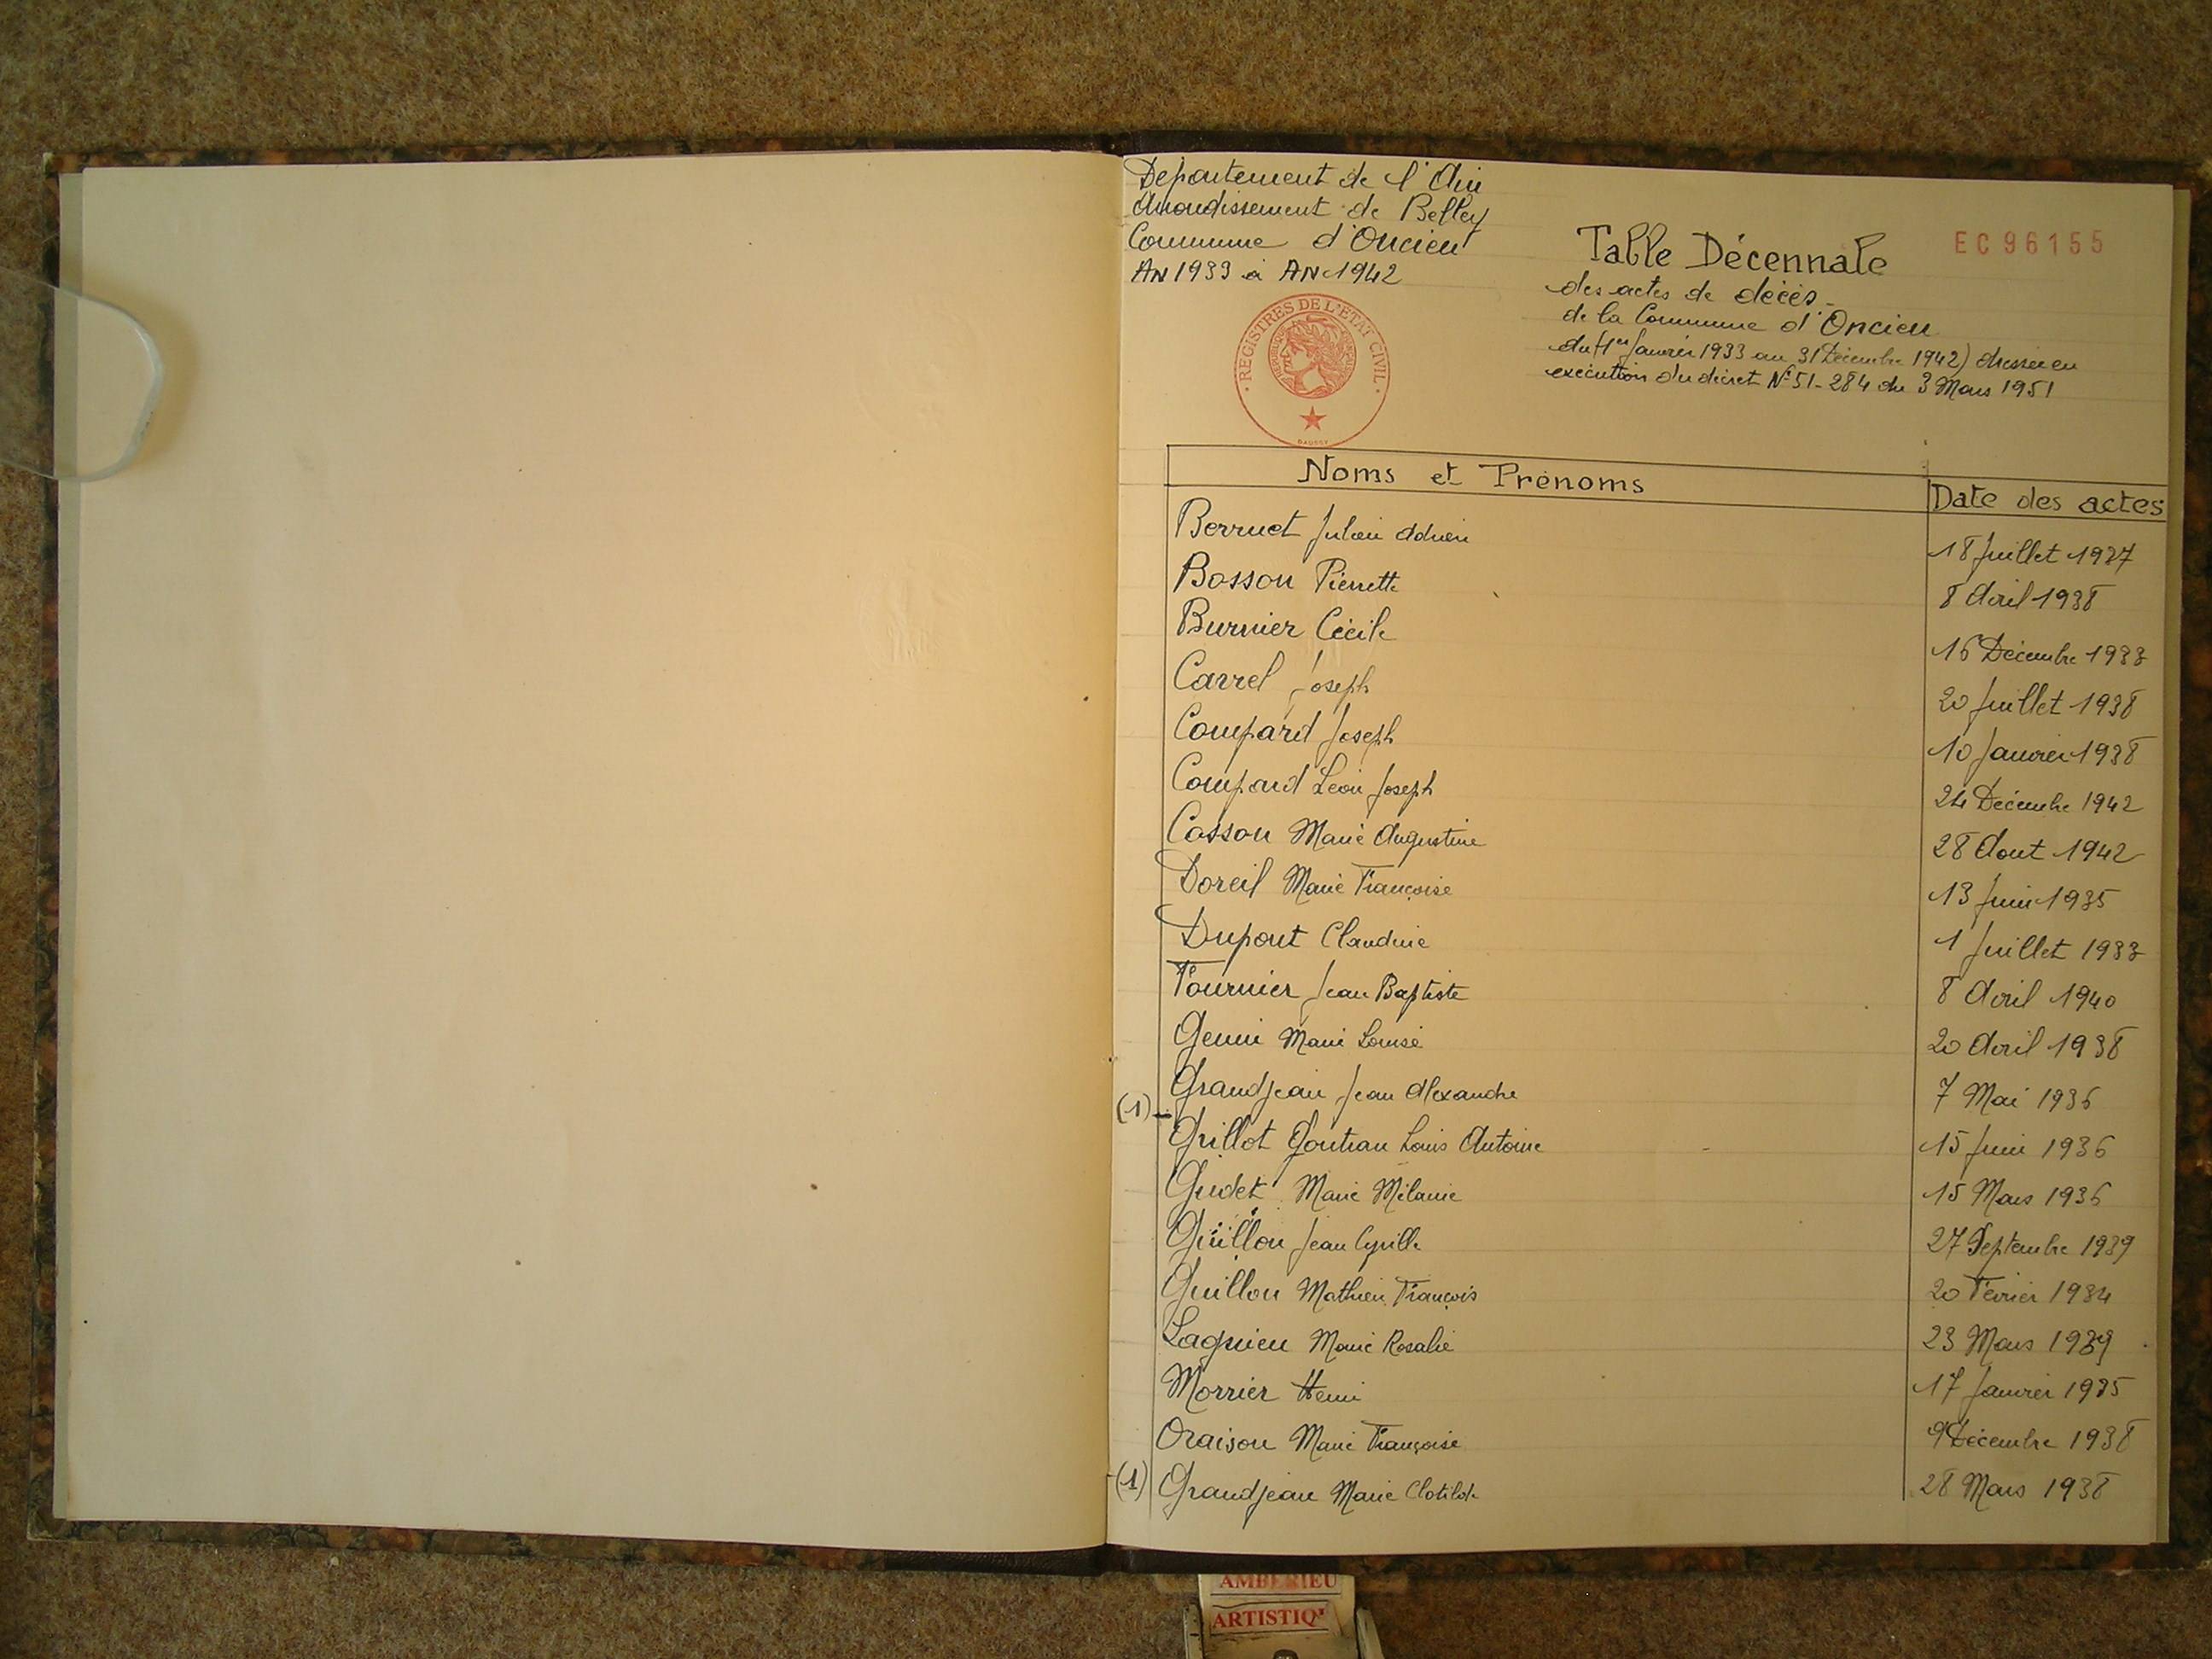 Departement de l'Ain
Arrondissement de Belley
Commune d'Oncieu
AN 1933 à AN 1942
Table Décennale
EC96155
des actes de décès
de la Commune d'Oncieu
du (1er Janvier 1933 au 31 Décembre 1942) dressée en
exécution du décret N° 51-284 du 3 Mars 1951
REGISTRES DE L'ETAT CIVIL
Noms et Prénoms
Date des actes
Berruet Julien Adrien 18 Juillet 1937
Bosson Pierrette 8 Avril 1938
Burnier Cécile 16 Décembre 1933
Carrel Joseph 20 Juillet 1938
Compard Joseph 10 Janvier 1938
Compard Léon Joseph 24 Décembre 1942
Cosson Marie Augustine 28 Aout 1942
Doreil Marie Françoise 13 Juin 1935
Dupont Claudine 1 Juillet 1933
Fournier Jean Baptiste 8 Avril 1940
Genin Marie Louise 20 Avril 1938
Grandjean Jean Alexandre 7 Mai 1936
(1)
Grillot Gontran Louis Antoine 15 Juin 1936
Gudet Marie Mélanie 15 Mars 1936
Guillon Jean Cyrille 27 Septembre 1939
Guillon Mathieu François 20 Février 1934
Lagnieu Marie Rosalie 23 Mars 1939
Morrier Henri 17 Janvier 1935
Oraison Marie Françoise 9 Décembre 1938
(1) Grandjean Marie Clotilde 28 Mars 1938
AMBERIEU
ARTISTIQ'